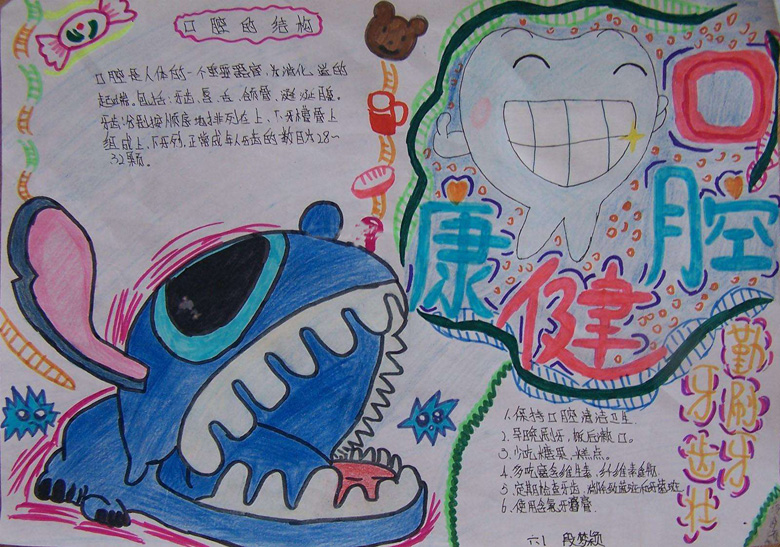 口腔的结构
口腔是人体的一个重要器官,为消化道的
起端。包括:牙齿、唇、舌、颌骨、涎腺。
牙齿分别按顺序地排列在上、下牙槽骨上
组成上、下牙列,正常成年人牙齿的数目为28~
32颗。
口
腔
健
康
勤刷牙
牙齿壮
1、保持口腔清洁卫生.
2、早晚刷牙,饭后漱口。
3、少吃糖果、糕点。
4、多吃富含维生素、纤维素食物.
5、定期检查牙齿,
6、使用含氟牙膏.
六1 段梦颖